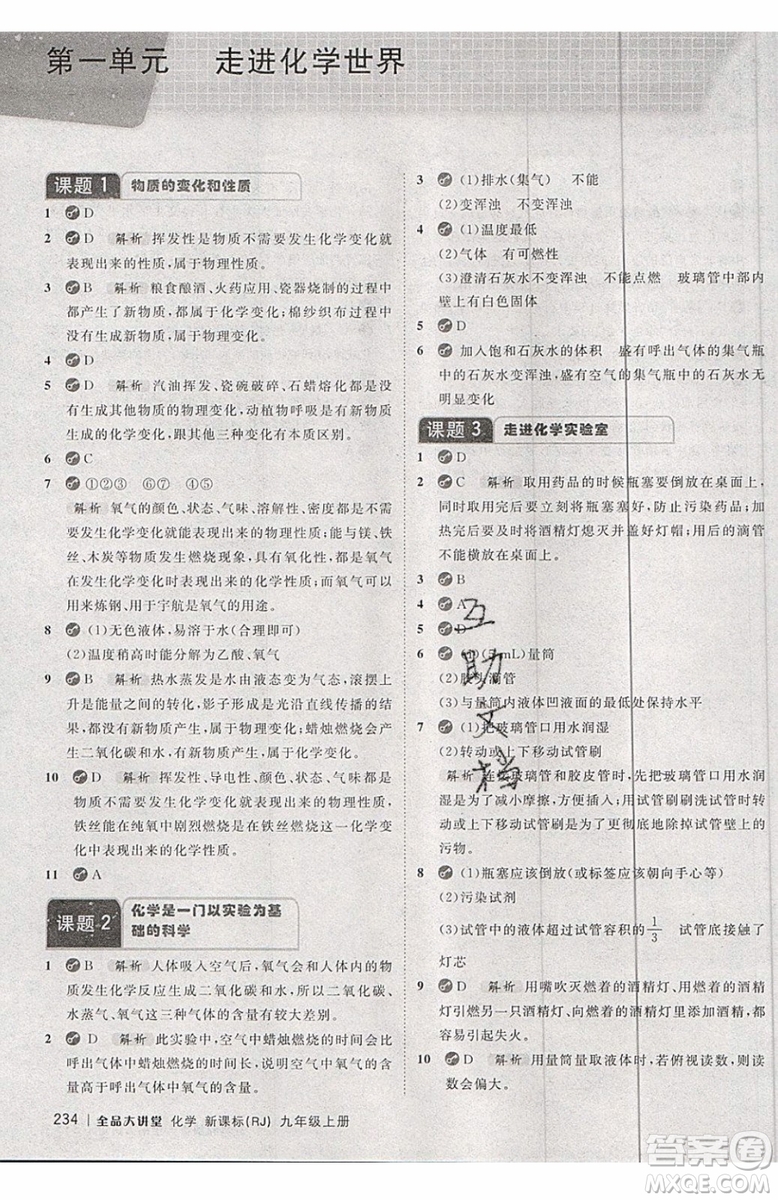 第一单元 走进化学世界
课题1 物质的变化和性质
1 D
2 D 解析 挥发性是物质不需要发生化学变化就
表现出来的性质,属于物理性质。
3 B 解析 粮食酿酒、火药应用、瓷器烧制的过程中
都产生了新物质,都属于化学变化;棉纱织布过程
没有生成新物质,属于物理变化。
4 D
5 D 解析 汽油挥发、瓷碗破碎、石蜡熔化都是没
有生成新物质的物理变化,动植物呼吸是有新物质
生成的化学变化,故跟其他三种变化有本质区别。
6 C
7 ①②③ ⑥⑦ ④⑤
解析 氧气的颜色、状态、气味、溶解性、密度,不需
要发生化学变化就能表现出来的物理性质;能与镁、铁
丝、木炭等物质发生燃烧现象,具有氧化性,是氧气
在发生化学变化时表现出来的性质,属于化学性质;
用来炼钢、用于宇航是氧气的用途。
8 (1)无色液体,易溶于水(合理即可)
(2)温度稍高时会分解为乙酸、氧气
9 D 解析 热水蒸发是水由液态变为气态,滚摆上
升是能量之间的转化,影子形成是光沿直线传播的
结果,均没有产生新物质,属于物理变化;蜡烛燃烧会产
生二氧化碳和水,属于化学变化。
10 D 解析 挥发性、导电性、颜色、状态、气味不需
要发生化学变化就能表现出来,属于物理性质;
铁丝能在纯氧中剧烈燃烧是在铁丝燃烧这个化学变
化中表现出来的,属于化学性质。
11 A
课题2 化学是一门以实验为基
础的科学
1 B 解析 人体吸入空气后,氧气与体内的有机物
发生化学反应生成二氧化碳和水,所以二氧化碳、
水、氧气这三种气体的含量变化大。
2 D 解析 此实验中,空气中蜡烛燃烧的时间会比
呼出气体中蜡烛燃烧的时间长,说明空气中氧气的
含量大于呼出气体中氧气的含量。
3 (1)排水(集气) 不能
(2)变浑浊 不变浑浊
4 (1)温度最低
(2)气体 有可燃性
(3)澄清石灰水不变浑浊 不能点燃 玻璃管中部内
壁上有白色固体
5 D
6 加入饱和石灰水的体积 盛有呼出气体的集气瓶
中的石灰水变浑浊,盛有空气的集气瓶中的石灰水无
明显变化
课题3 走进化学实验室
1 D
2 C 解析 取用药品的时候瓶塞要倒放在桌面上,
同时取用完后要立刻将瓶塞塞好,防止污染药品;加
热完后要及时将酒精灯熄灭并盖好灯帽;用后的滴管
不能横放在桌面上。
3 B
4 A
5 D
6 (1) mL)量筒
(2)胶头滴管
(3)与量筒内液体凹液面的最低处保持水平
7 (1)把玻璃管口用水润湿
(2)转动或上下移动试管刷
解析 连接玻璃管和胶皮管时,先把玻璃管口用水润
湿是为了减小摩擦,方便插入;用试管刷刷洗试管时,
转动或上下移动试管刷是为了更彻底地除掉试管壁上
的污物。
8 (1)瓶塞应该倒放(或标签应该朝向手心等)
(2)污染试剂
(3)试管中的液体超过试管容积的1/3 试管底接触了
灯芯
9 D 解析 用嘴吹灭燃着的酒精灯、向燃着的酒精
灯内添加酒精、用燃着的酒精灯引燃另一只酒精灯,都
容易引起失火。
10 D 解析 用量筒量取液体时,若俯视读数,则读
数会偏大。
互助文档
234 全品大讲堂 化学 新课标(RJ) 九年级上册
答案圈
MXQE.COM